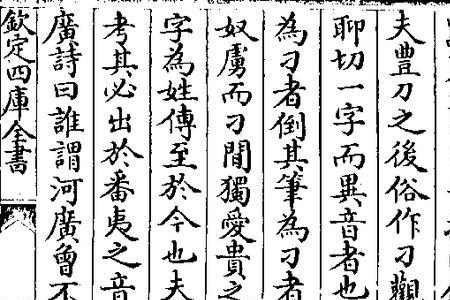 夫豐刀之後俗作刁觀
聊切一字而異音者也
為刁者倒其筆為刁者
奴虜而刁間獨愛貴之
字為姓傳至於今也夫
考其必出於番夷之音
廣詩曰誰謂河廣曾不
欽定四庫全書